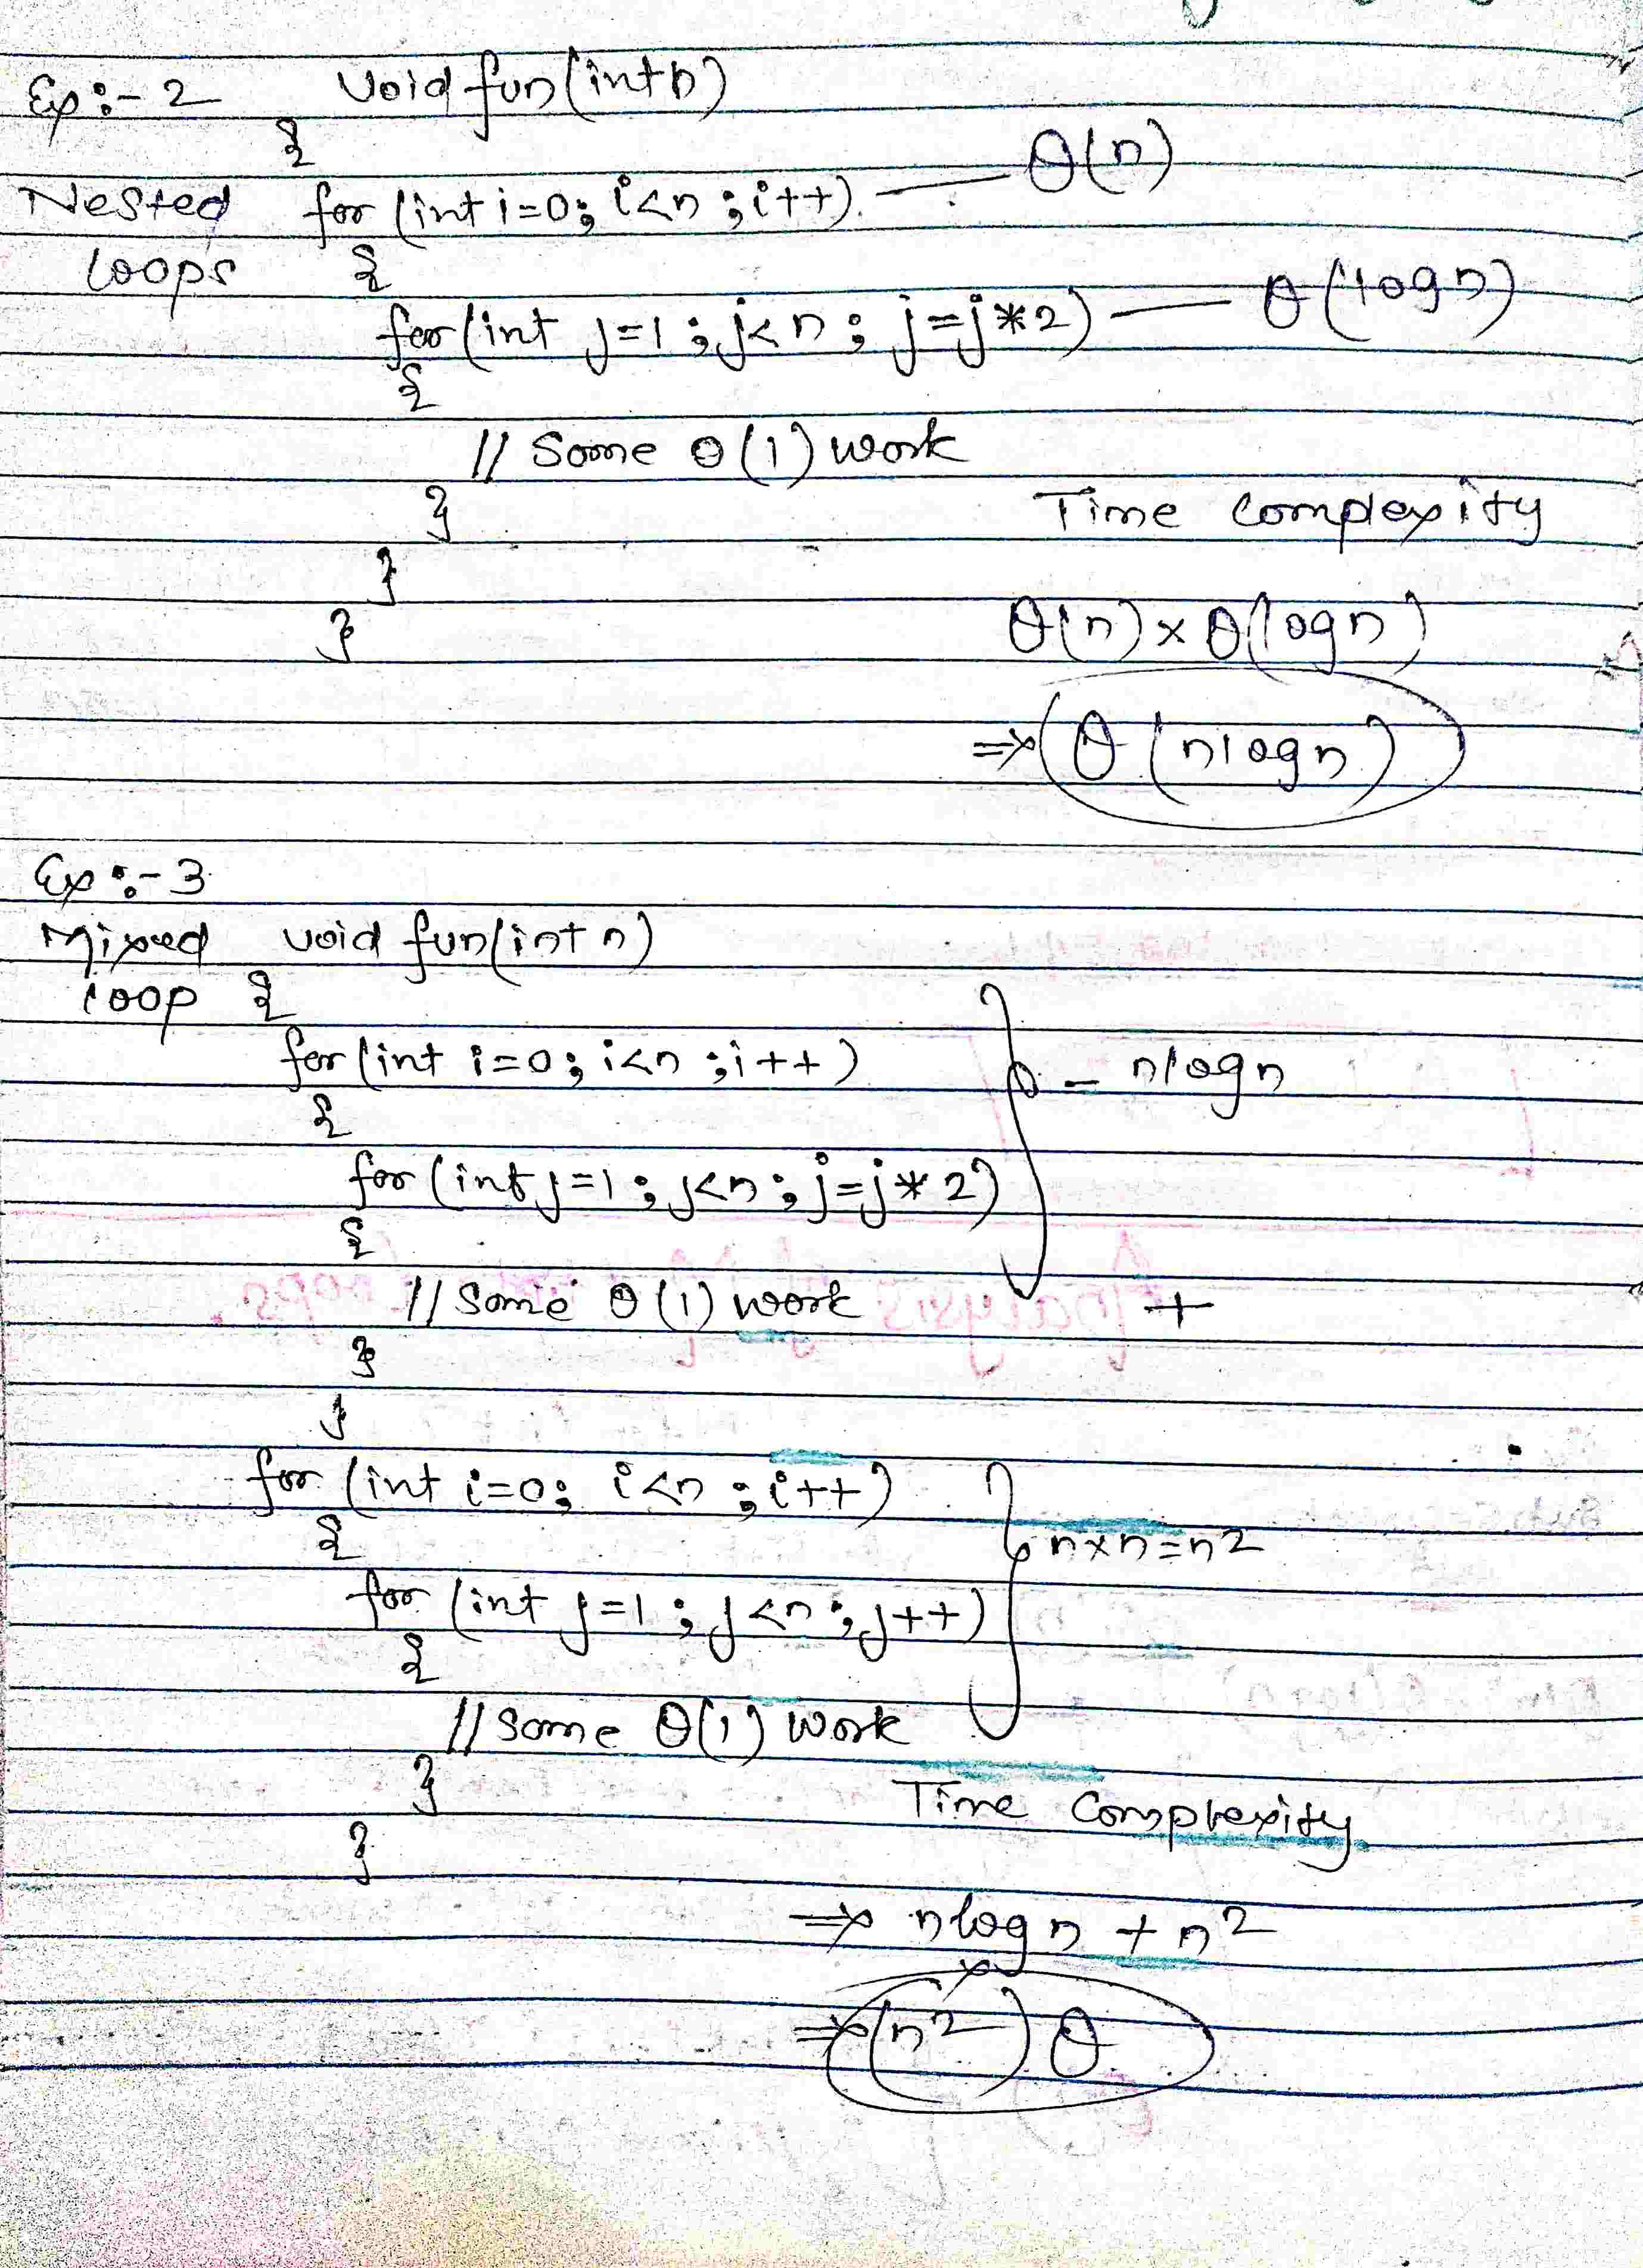 Ex :- 2 void fun(int n)
{
Nested for (int i=0; i<n ; i++) — θ(n)
loops {
for (int j=1 ; j<n ; j=j*2) — θ(logn)
{
// Some θ(1) work
} Time Complexity
}
} θ(n) × θ(logn)
⇒ θ(nlogn)
Ex :- 3
Mixed void fun(int n)
loop {
for (int i=0; i<n ; i++) = nlogn
{
for (int j=1 ; j<n ; j=j*2)
{
// Some θ(1) work +
}
}
for (int i=0; i<n ; i++)
{ n×n=n2
for (int j=1 ; j<n ; j++)
{
// Some θ(1) work
} Time Complexity
}
⇒ nlogn + n2
⇒ (n2) θ